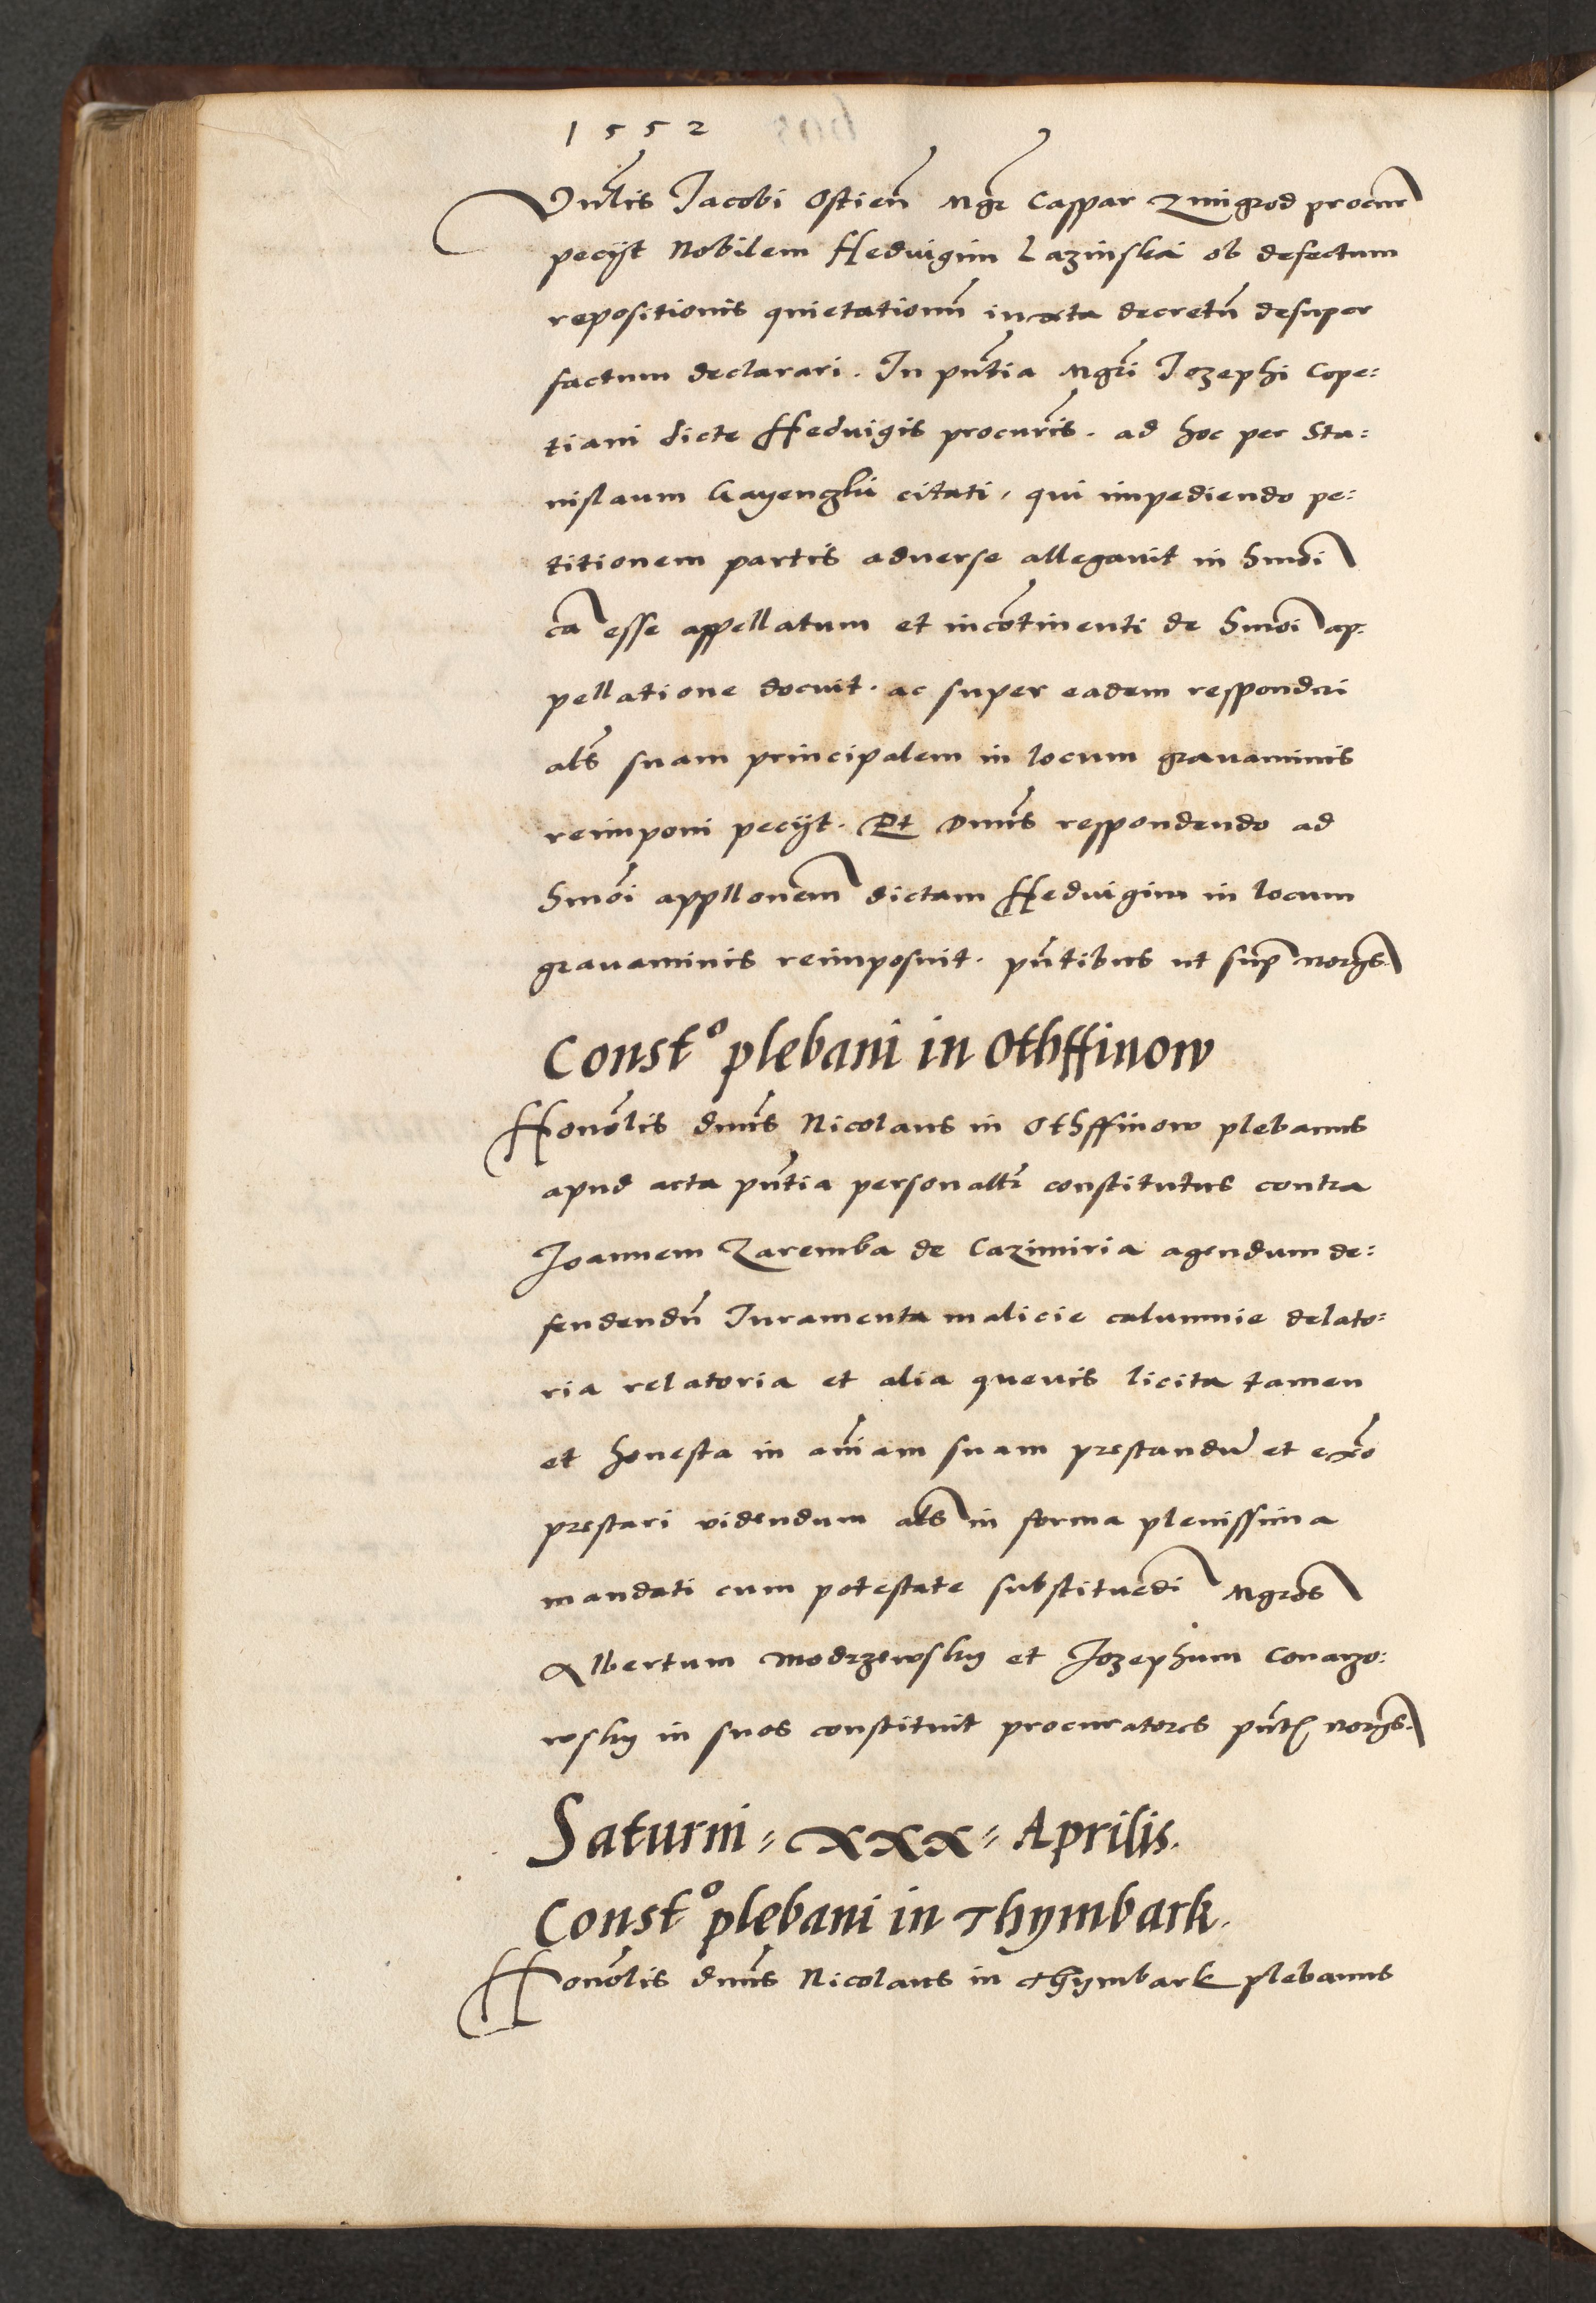 1552
Vnlis Jacobi Ostien̄ Mgr Caspar Zmigrod procur
pecijt Nobilem Heduigim Lazinska ob defectum
repositionis quietationū iuxta decretū desuper
factum declarari. In pn̄tia Mgri Jozephi Cope:
tiani dicte Heduigis procuris. ad hoc per Sta:
nislaum Gayenski citati, qui impediendo pe:
titionem partis aduerse allegauit in hmōi
cā esse appellatum et incōtinenti de hmōi ap:
pellatione docuit. ac super eadem responderi
als suam principalem in locum grauaminis
reimponi pecijt. Et Dnūs respondendo ad
hmōi appllonem dictam Heduigim in locum
grauaminis reimposuit. pn̄tibus ut sup̄ norijs.
Const° plebani in Othffinow
Honōlis dnūs Nicolaus in Othffinow plebanus
apud acta pn̄tia personalr constitutus contra
Joannem Zaremba de Cazimiria agendum de:
fendendū Juramenta malicie calumnie delato:
ria relatoria et alia queuis licita tamen
et honesta in aīam suam prestandū et exō
prestari videndum als in forma plenissima
mandati cum potestate substituēdi Mgros
Albertum Modrzewsky et Jozephum Conarzo:
wsky in suos constituit procuratores pn̄t norijs.
Saturni = xxx = Aprilis.
Const° plebani in Thymbark.
Honōlis dnūs Nicolaus in Thymbark plebanus